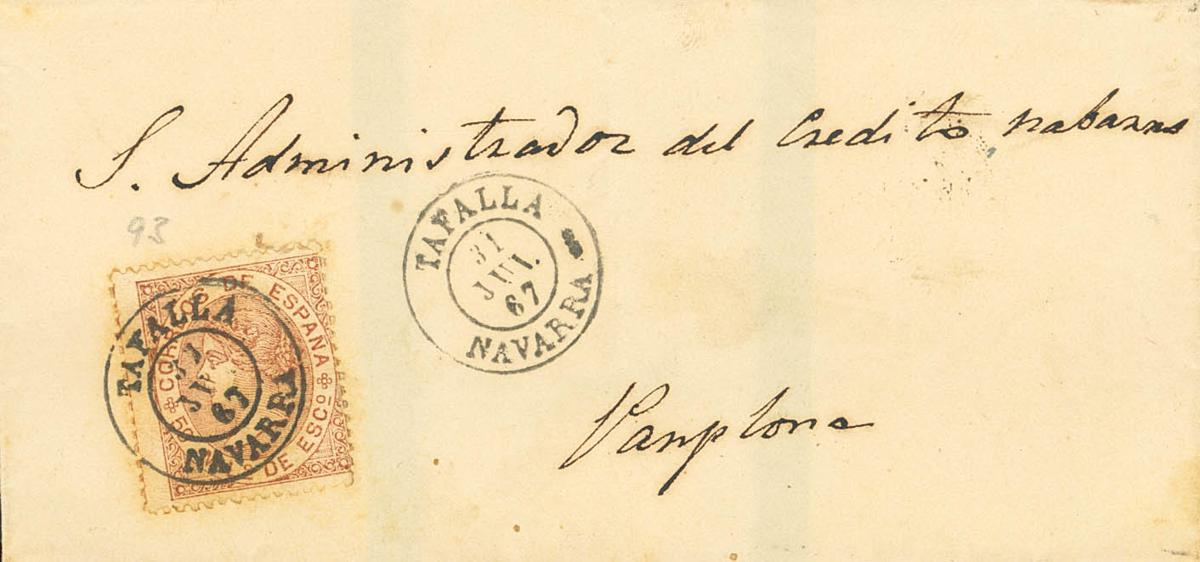 S. Administrador del Credito nabarro
93
TAFALLA
31
JUL.
67
NAVARRA
CORREOS DE ESPAÑA
DE ESCO
TAFALLA
31
67
NAVARRA
Panplona